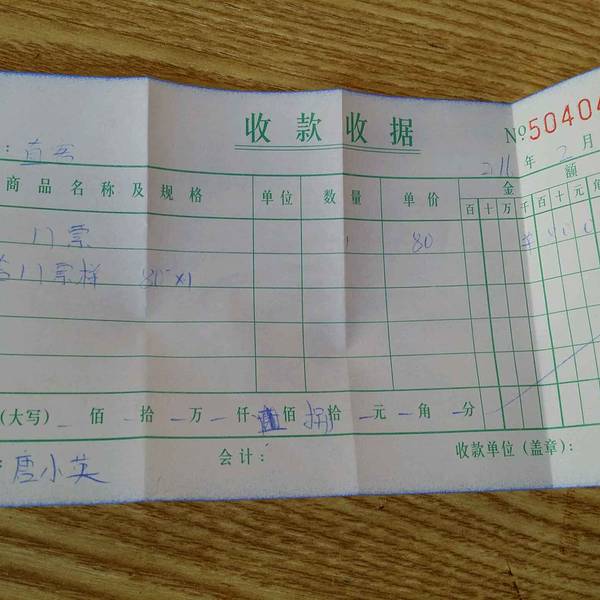 收款收据
№50404
年 2 月
商品名称及规格 单位 数量 单价 金额
百 十 万 千 百 十 元 角
门票 1 80 ¥ 8 0 0
门票样 80×1
(大写) 佰 拾 万 仟 佰 捌拾 元 角 分
唐小英 会计： 收款单位(盖章)：